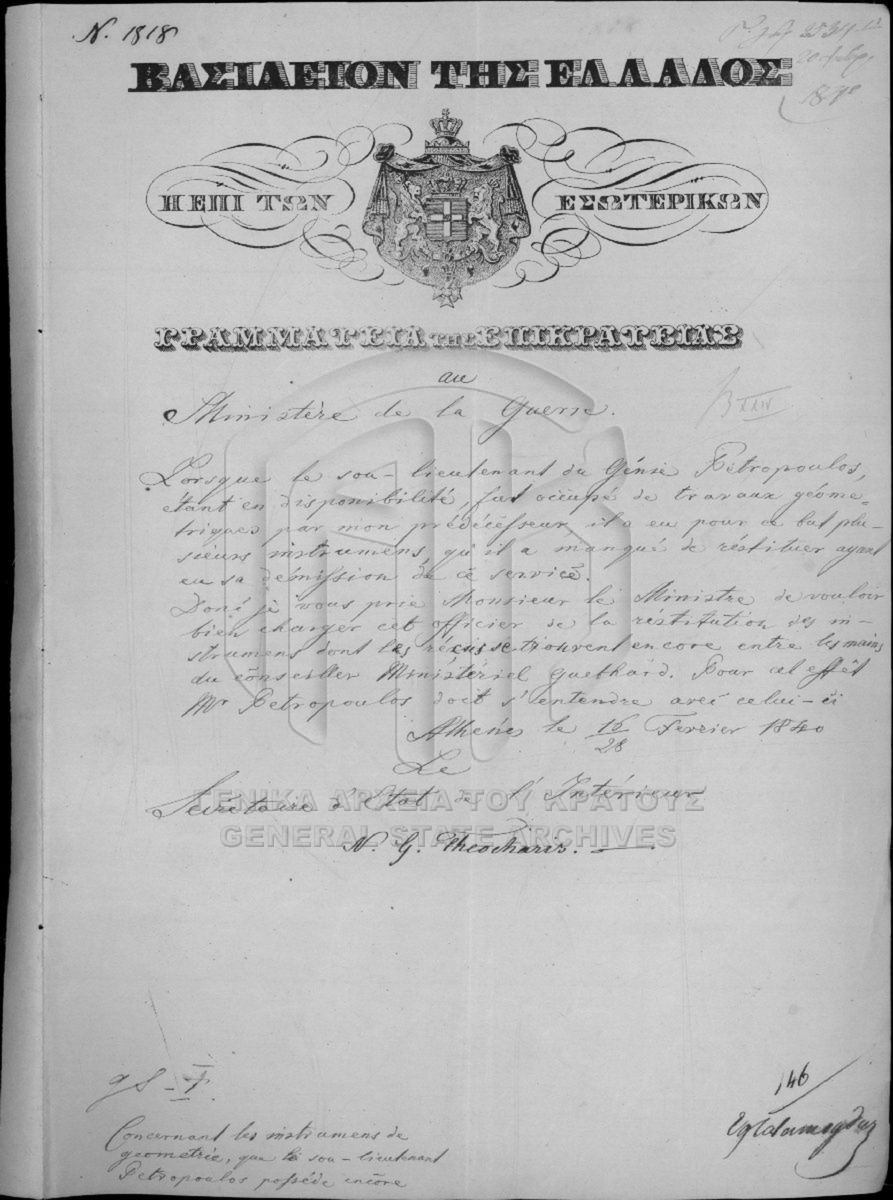 N. 1818
ΒΑΣΙΛΕΙΟΝ ΤΗΣ ΕΛΛΑΔΟΣ
Η ΕΠΙ ΤΩΝ ΕΣΩΤΕΡΙΚΩΝ
ΓΡΑΜΜΑΤΕΙΑ ΤΗΣ ΕΠΙΚΡΑΤΕΙΑΣ
au
Ministère de la Guerre.
Lorsque le sou-lieutenant du Génie Pétropoulos,
étant en disponibilité, fut occupé de travaux géome=
triques par mon prédécesseur, il a eu pour ce but plu-
sieurs instrumens, qu'il a manqué de réstituer ayant
eu sa démission de ce service.
Donc je vous prie Monsieur le Ministre de vouloir
bien charger cet officier de la réstitution des in-
strumens dont les réçus se trouvent encore entre les mains
du conseiller Ministériel Guebhard. Pour cet effèt
Mr Petropoulos doit s'entendre avec celui-ci
Athenes le 16/28 Fevrier 1840
Le
Secrétaire d'Etat de l'Intérieur
N. G. Theocharis.
ΓΕΝΙΚΑ ΑΡΧΕΙΑ ΤΟΥ ΚΡΑΤΟΥΣ
GENERAL STATE ARCHIVES
146
Concernant les instrumens de
géometrie, que le sou-lieutenant
Petropoulos possède encore